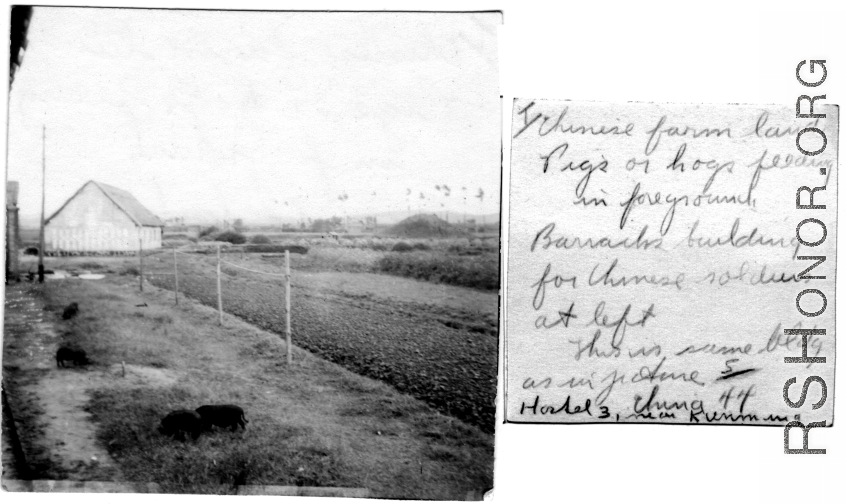 Chinese farm land
Pigs or hogs feeding
in foreground
Barracks building
for Chinese soldiers
at left
This is same bldg
as in picture 5
China 44
Hostel 3, near Kunming
RSHONOR.ORG